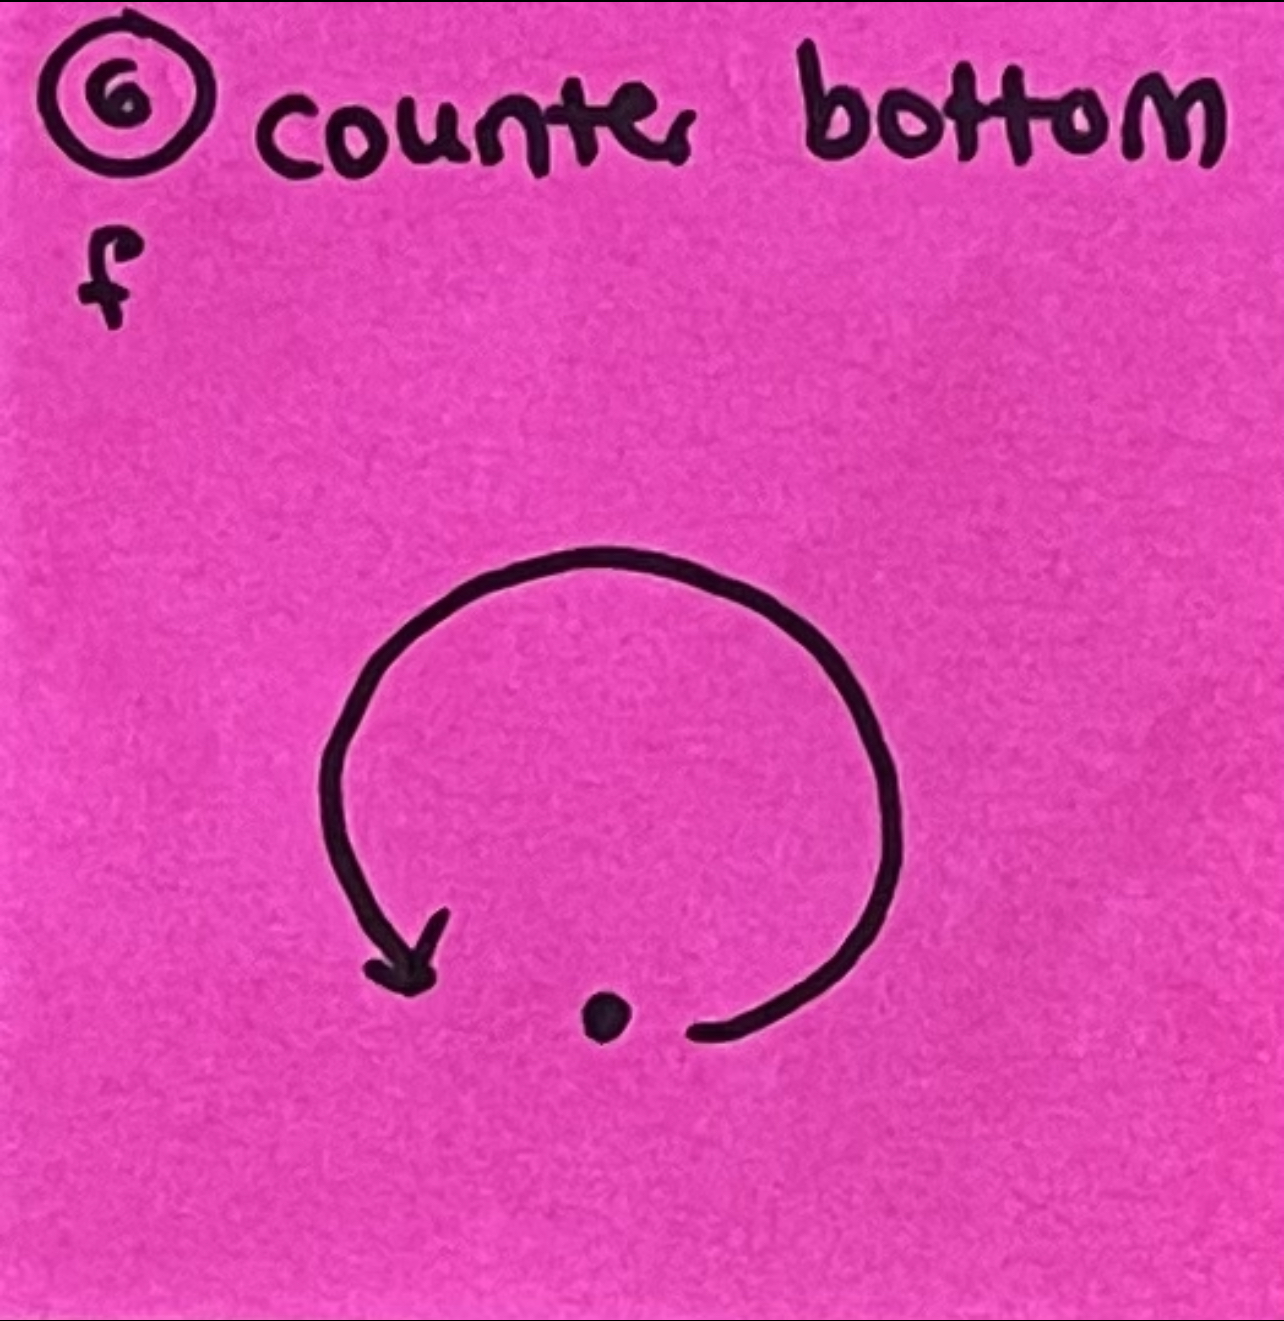 6 counter bottom
f